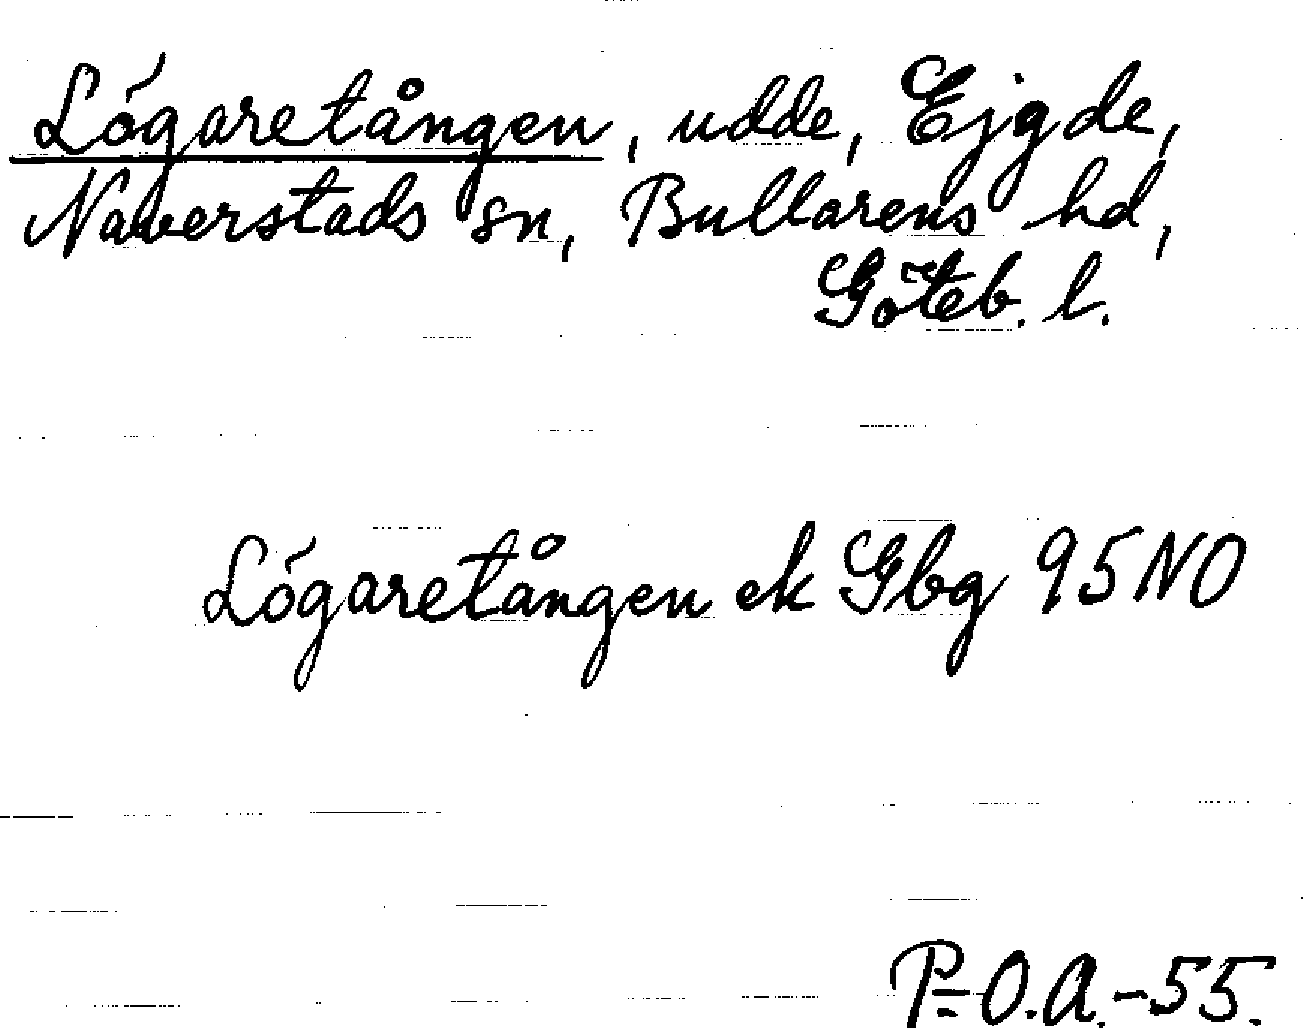 Lógaretången, udde, Ejgde,
Naverstads sn, Bullarens hd,
Göteb. l.
Lógaretången ek Gbg 95 NO
P-O.A.-55.